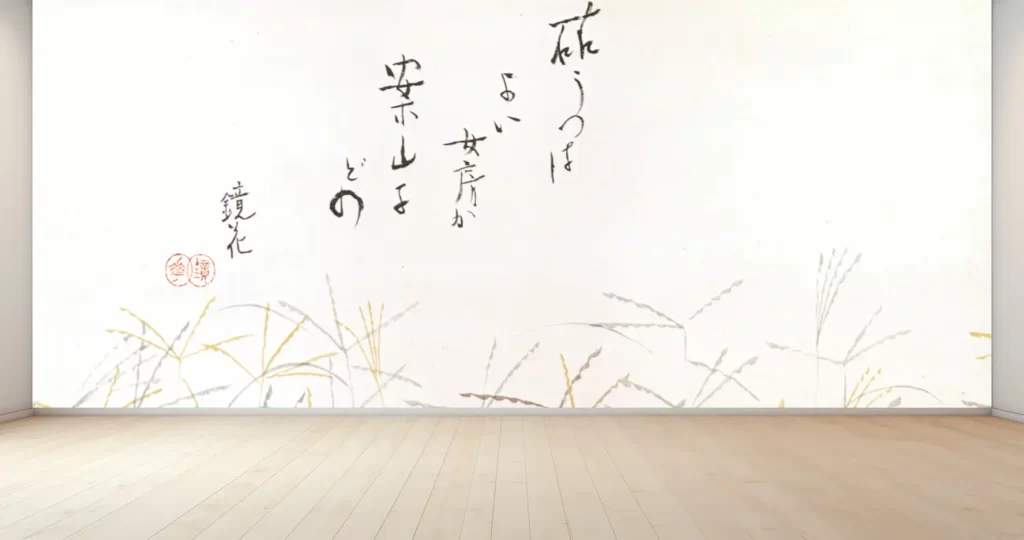 砧うつは
よい
女房か
案山子
どの
鏡花